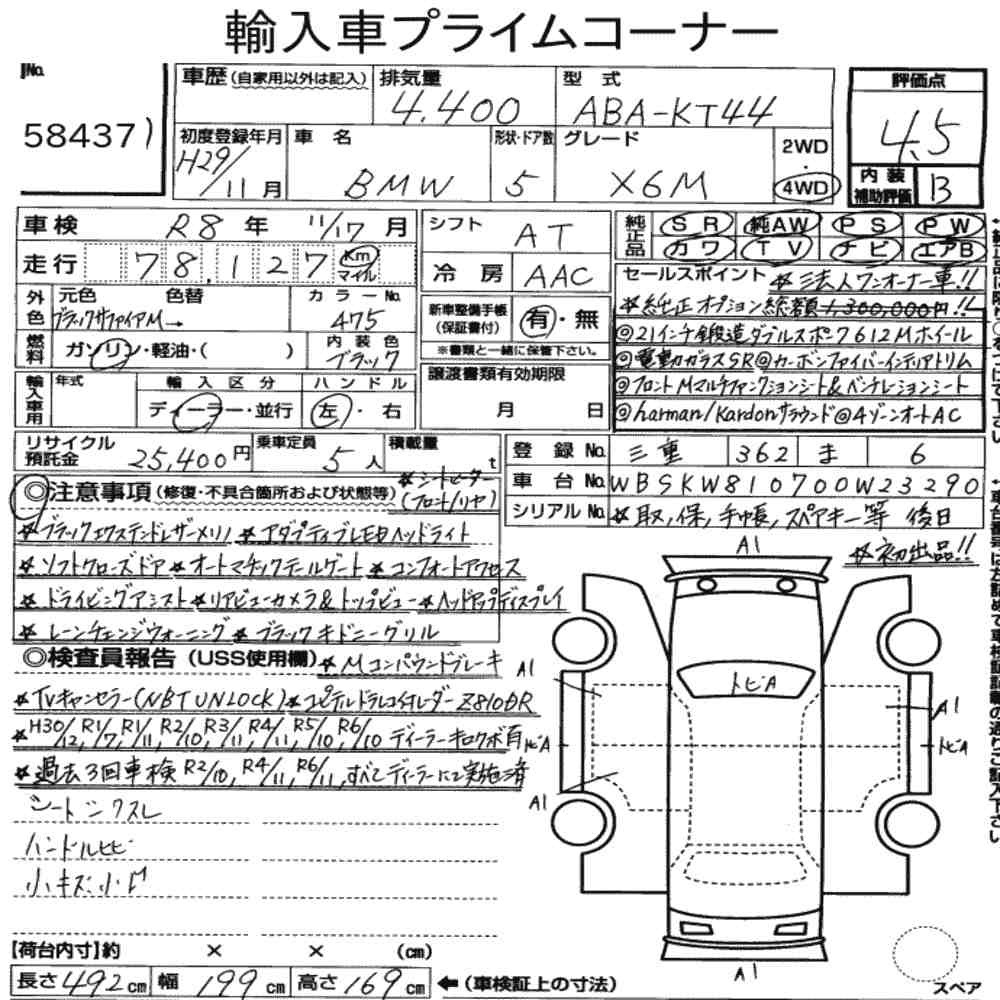 輸入車プライムコーナー
No. 58437
車歴 (自家用以外は記入) 排気量 4.400 型式 ABA-KT44
評価点 4.5
初度登録年月 H29/11月 車名 BMW 形状・ドア数 5 グレード X6M 2WD・4WD
内装補助評価 B
車検 R8年 11/17月 シフト AT
純正品 SR 純AW PS PW
カワ TV ナビ エアB
走行 78,127 Km マイル 冷房 AAC
セールスポイント ☆法人ワンオーナー車!!
☆純正オプション総額1,300,000円!!
外色 元色 色替 カラーNo.
ブラックサファイアM→ 475
新車整備手帳(保証書付) 有・無
※書類と一緒に保管下さい。
◎21インチ鍛造ダブルスポーク612Mホイール
燃料 ガソリン・軽油・( ) 内装色 ブラック
◎電動ガラスSR◎カーボンファイバーインテリアトリム
輸入車用 年式 輸入区分 ハンドル
ディーラー・並行 左・右
譲渡書類有効期限 月 日
◎フロントMマルチファンクションシート&ベンチレーションシート
◎harman/Kardonサラウンド◎4ゾーンオートAC
リサイクル預託金 25,400円 乗車定員 5人 積載量 t
登録No. 三重 362 ま 6
車台No. WBSKW810700W23290
シリアルNo. ☆取,保,手帳,スペアキー等 後日
☆初出品!!
◎注意事項 (修復・不具合箇所および状態等) ☆シートヒーター(フロント/リヤ)
☆ブラックエクステンドレザーメリノ ☆アダプティブLEDヘッドライト
☆ソフトクローズドア☆オートマチックテールゲート☆コンフォートアクセス
☆ドライビングアシスト☆リアビューカメラ&トップビュー☆ヘッドアップディスプレイ
☆レーンチェンジウォーニング☆ブラックキドニーグリル
◎検査員報告 (USS使用欄) ☆Mコンパウンドブレーキ
☆TVキャンセラー(NBT UNLOCK)☆ユピテルドラレコ
Z810DR
☆H30/12,R1/7,R1/11,R2/10,R3/11,R4/11,R5/10,R6/10 ディーラーキロク
☆過去3回車検R2/10,R4/11,R6/11,すべてディーラーにて実施済
シートシワスレ
ハンドル
小キズ小
A1
A1
トビA
A1
トビA
トビA
A1
A1
【荷台内寸】約 × × (cm)
長さ492cm 幅199cm 高さ169cm ←(車検証上の寸法)
スペア